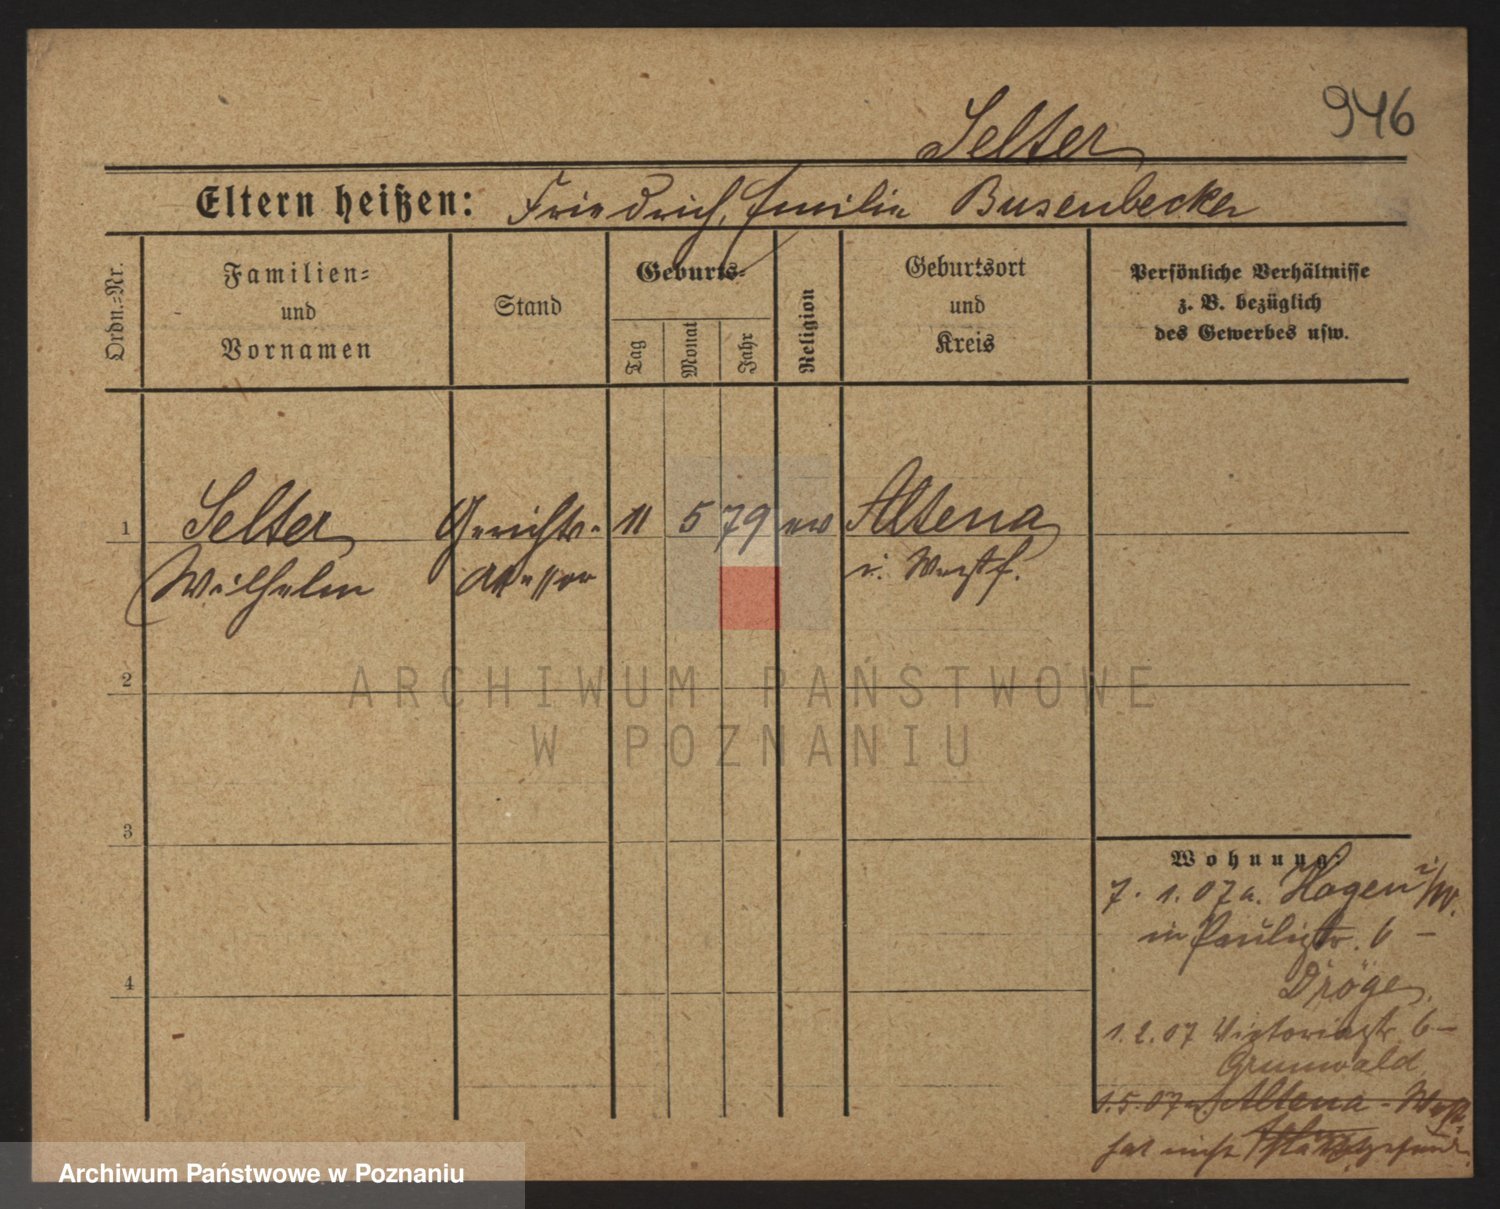 946
Selter
Eltern heißen: Friedrich, Emilie Busenbecker
Ordn.-Nr.
Familien-
und
Vornamen
Stand
Geburts-
Tag
Monat
Jahr
Religion
Geburtsort
und
Kreis
Persönliche Verhältnisse
z. B. bezüglich
des Gewerbes usw.
1 Selter Gerichts- 11 5 79 ev Altena
Wilhelm Assessor i. Westf.
2
ARCHIWUM PAŃSTWOWE
W POZNANIU
3
4
Wohnung:
7. 1. 07 a. Hagen i/W.
in Paulistr. 6 -
Dröge,
1. 2. 07 Victoriastr. 6 -
Grunwald
1. 5. 07 n. Altena - Westf.
hat nicht
Archiwum Państwowe w Poznaniu